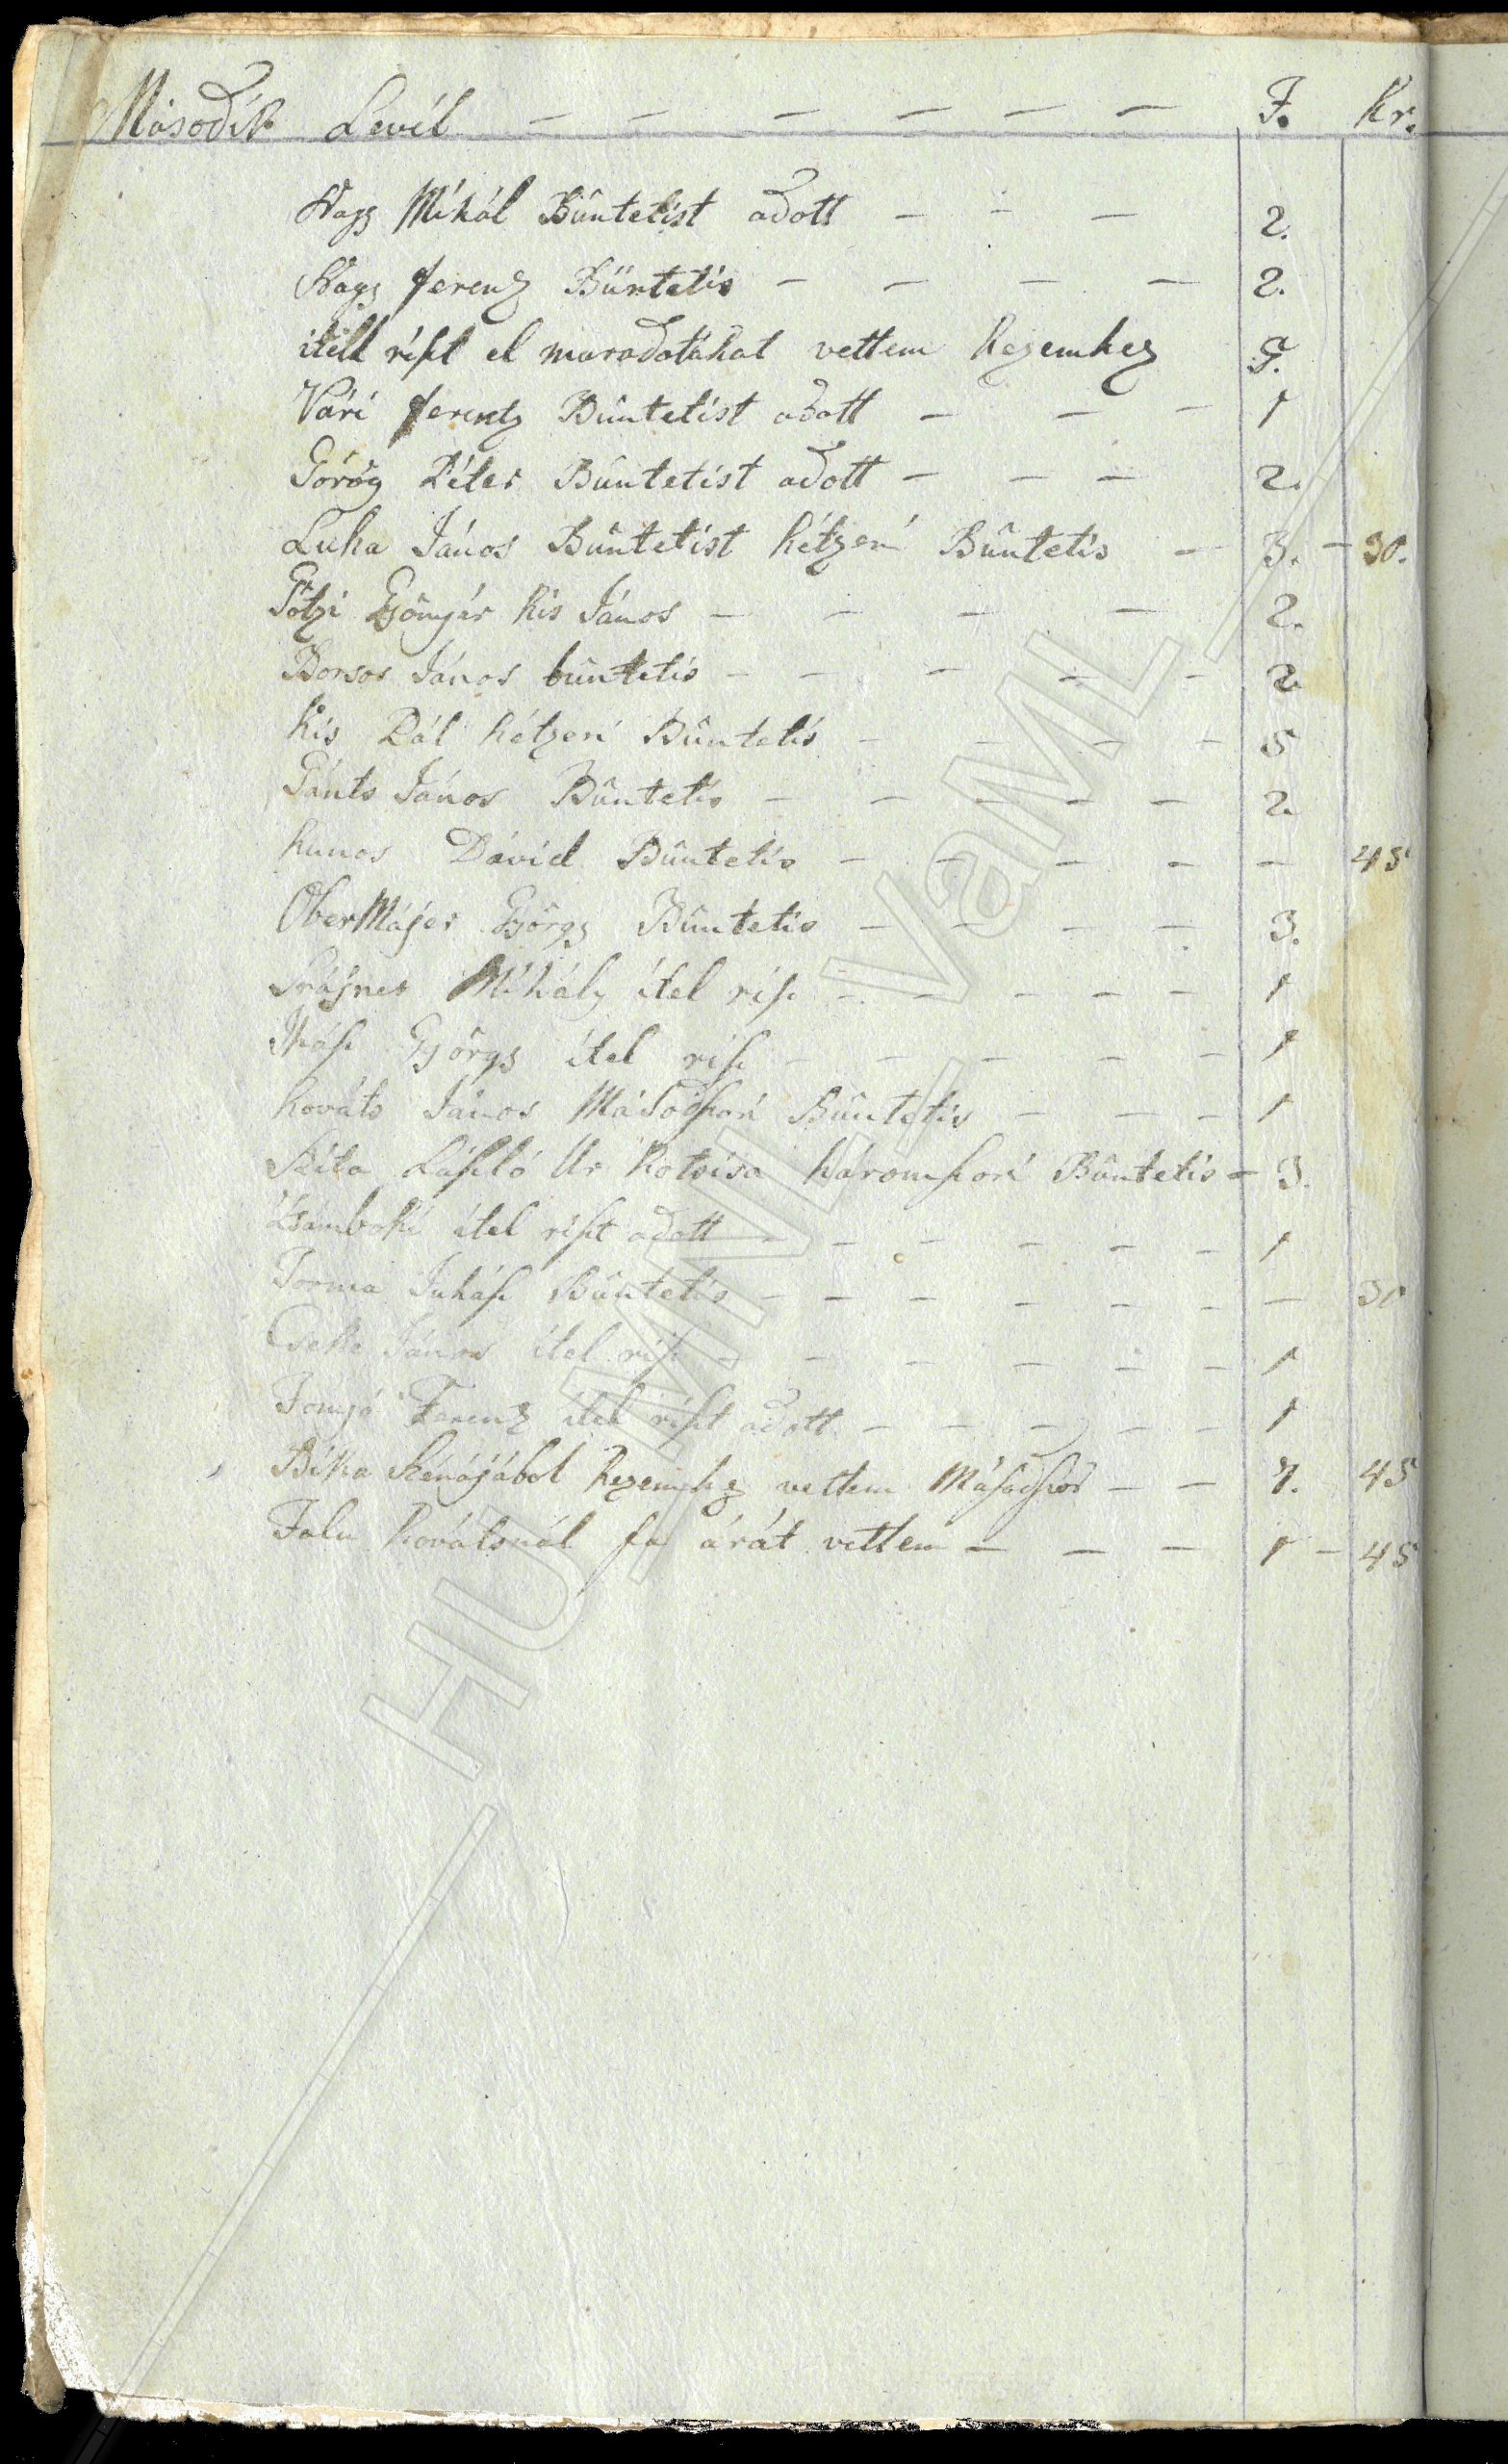 Második Levél — — — — — — F. Kr.
Nagy Mihál Büntetist adott — — — 2.
Nagy ferentz Büntetis — — — — 2.
itéll részt el maradotakat vettem kezemhez 9.
Vári ferentz Büntetist adott — — — 1
Görög Péter Büntetist adott — — — 2.
Luka János Büntetist kétzeri Büntetis — 3. — 30.
Pötzi Gjöngjér kis János — — — — 2.
Borsos János büntetis — — — — — 2
kis Pál kétzeri Büntetis — — — — 5
Gánts János Büntetis — — — — — 2.
kunos Dávid Büntetis — — — — — 45
OberMájer Györgÿ Büntetis — — — — 3.
Mihály ítel rész — — — — — 1
György ítel rész — — — — — 1
kováts János Másodszori Büntetis — — — 1
Szita László Ur kotsisa háromszori Büntetis — 3.
Zsámboki ítel részt adott — — — — — 1
Torma Juhász Büntetis — — — — — — 30
Cseke János ítel rész — — — — — 1
Ferentz ítel részt adott — — — — — 1
Bika Szénájábol kezemhez vettem Másodszor — — 7. 45
Falu kovátsnál fa árát vettem — — — 1 — 45
HU MNL VaML